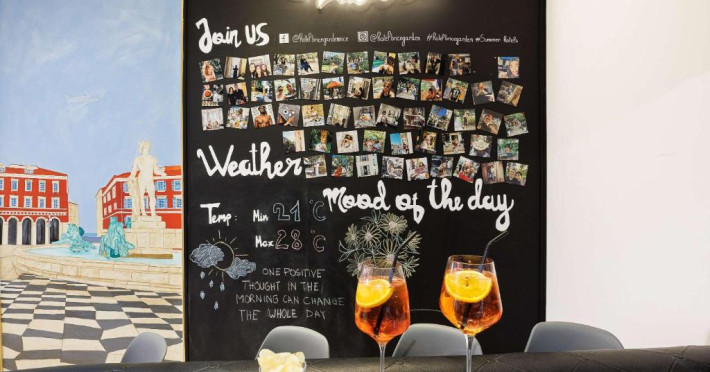 Join us
Weather
Mood of the day
Temp: Min 21 °C
Max 28 °C
ONE POSITIVE
THOUGHT IN THE
MORNING CAN CHANGE
THE WHOLE DAY